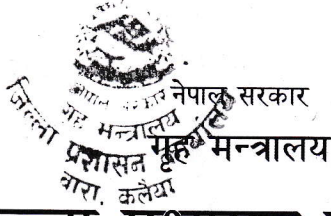 नेपाल सरकार
गृह मन्त्रालय
नेपाल सरकार
गृह मन्त्रालय
जिल्ला प्रशासन
बारा, कलैया